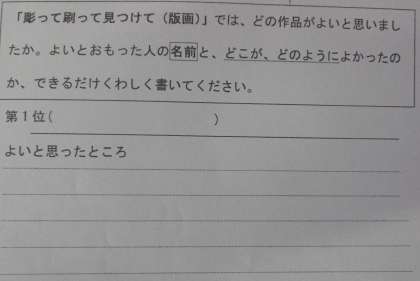 「彫って刷って見つけて（版画）」では、どの作品がよいと思いまし
たか。よいとおもった人の名前と、どこが、どのようによかったの
か、できるだけくわしく書いてください。
第１位(　　　　　　　　　　)
よいと思ったところ